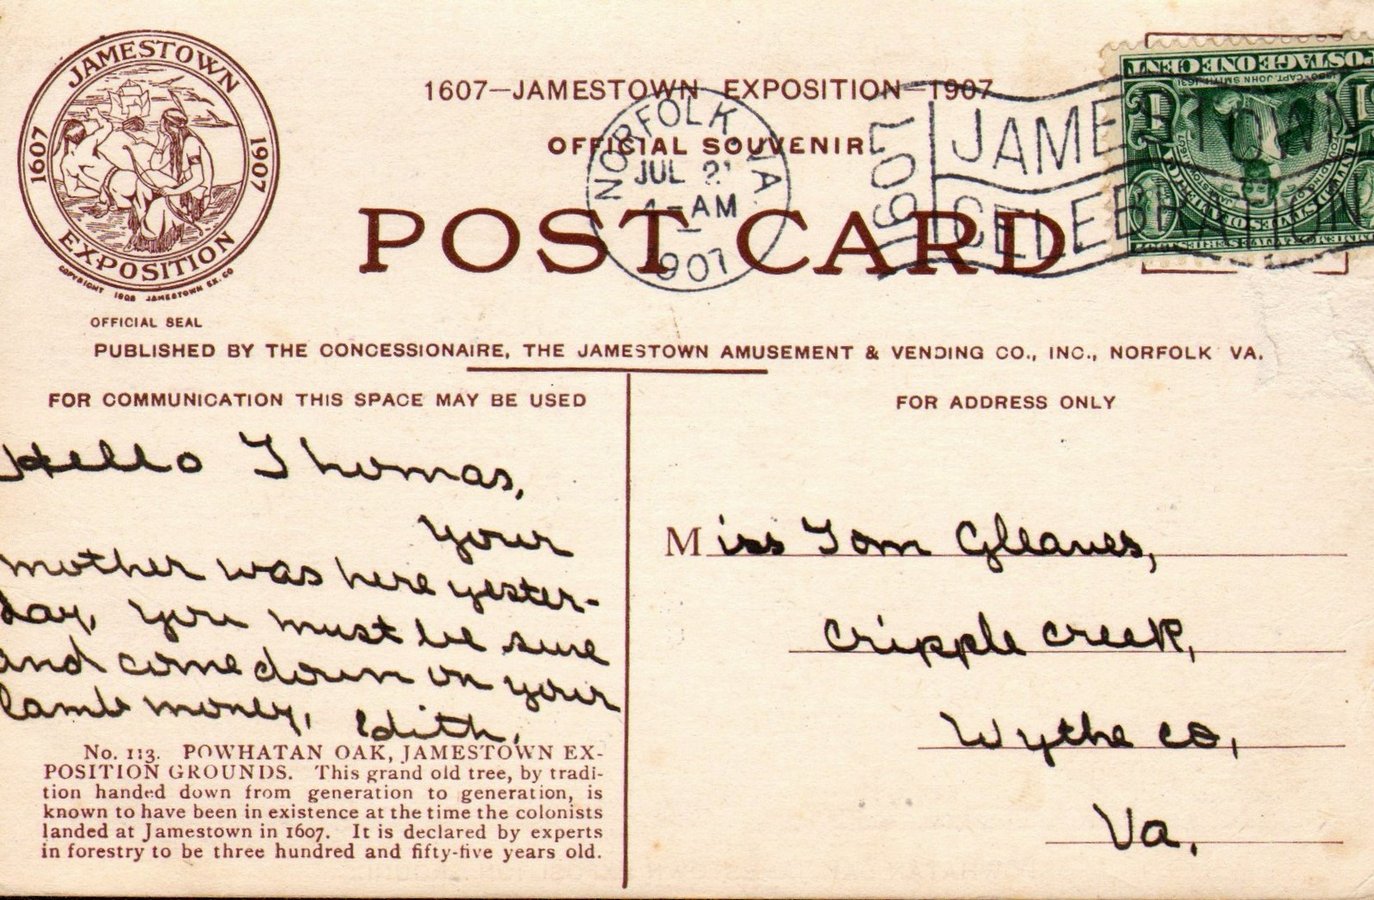 JAMESTOWN
1607 1907
EXPOSITION
COPYRIGHT 1906 JAMESTOWN EX. CO
OFFICIAL SEAL
1607—JAMESTOWN EXPOSITION—1907
OFFICIAL SOUVENIR
POST CARD
NORFOLK VA.
JUL 21
AM
1907
1907
JAMESTOWN
CELEBRATION
POSTAGE ONE CENT
1580 • CAPT. JOHN SMITH • 1631
1 1
UNITED STATES OF AMERICA
SERIES 1907
PUBLISHED BY THE CONCESSIONAIRE, THE JAMESTOWN AMUSEMENT & VENDING CO., INC., NORFOLK VA.
FOR COMMUNICATION THIS SPACE MAY BE USED
Hello Thomas,
your
mother was here yester-
day, you must be sure
and come down on your
lamb money, Edith.
No. 113. POWHATAN OAK, JAMESTOWN EX-
POSITION GROUNDS. This grand old tree, by tradi-
tion handed down from generation to generation, is
known to have been in existence at the time the colonists
landed at Jamestown in 1607. It is declared by experts
in forestry to be three hundred and fifty-five years old.
FOR ADDRESS ONLY
Miss Tom Gleaves,
Cripple Creek,
Wythe Co,
Va,